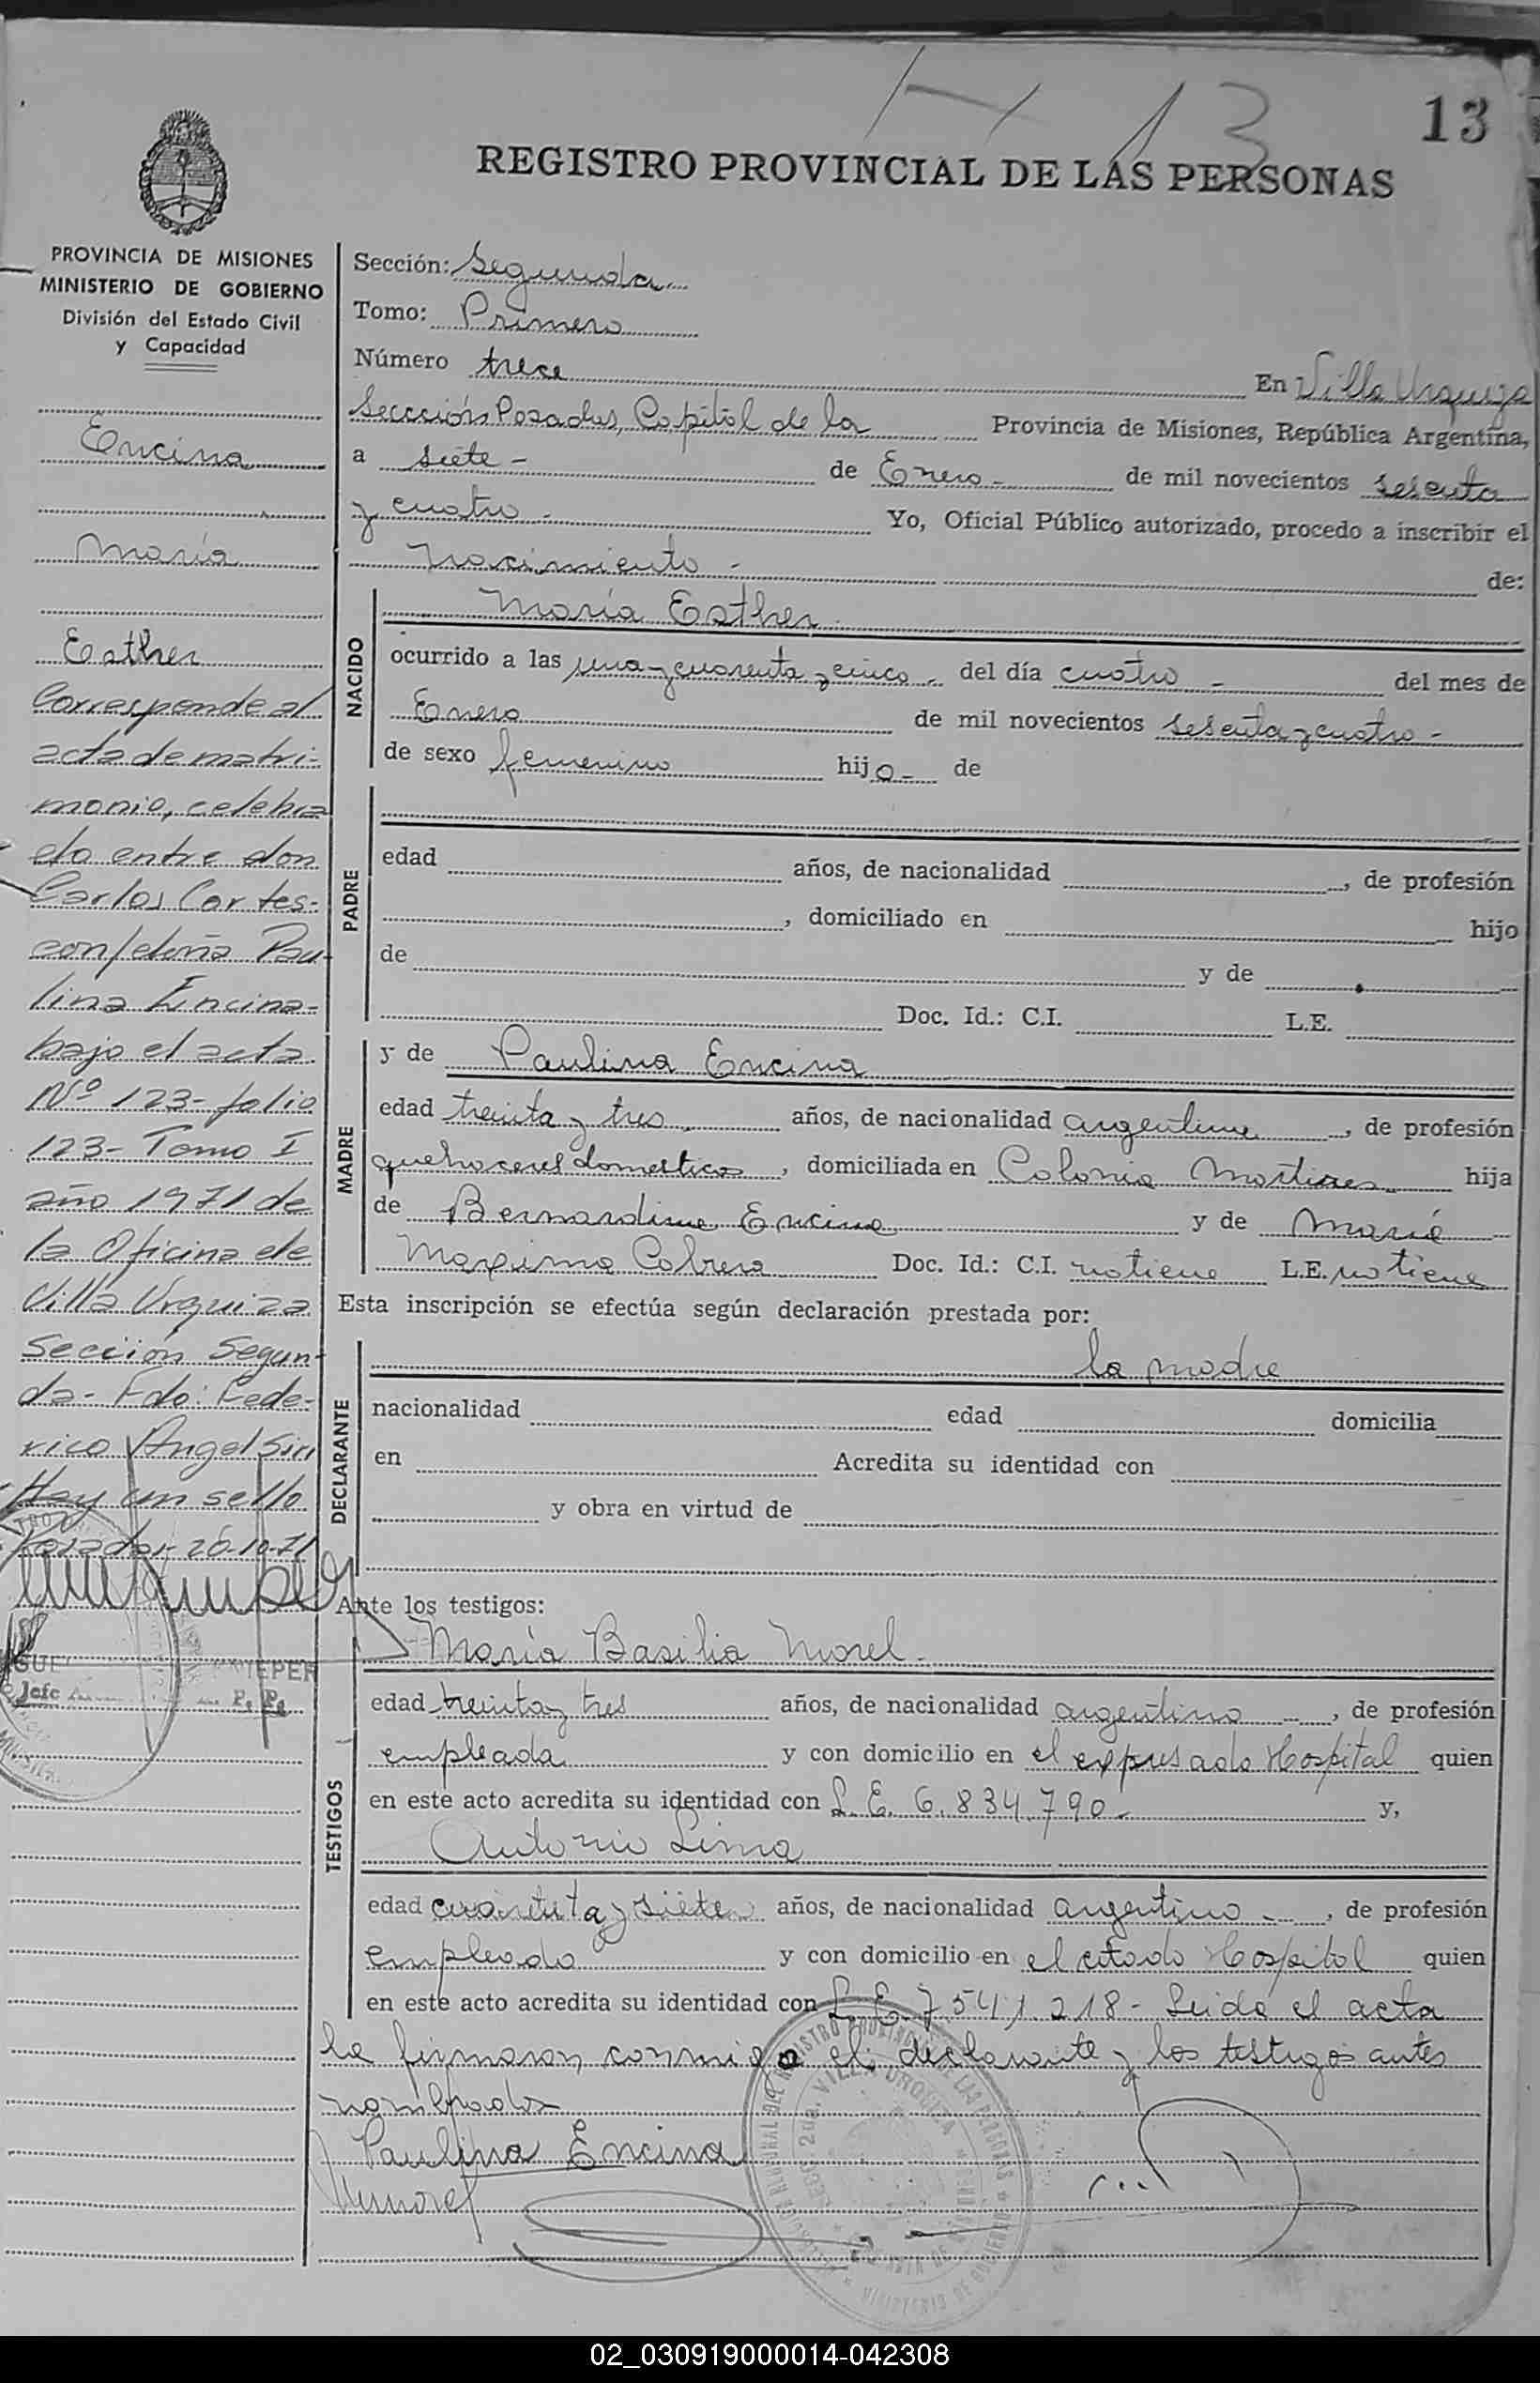 13
13
REGISTRO PROVINCIAL DE LAS PERSONAS
PROVINCIA DE MISIONES
MINISTERIO DE GOBIERNO
División del Estado Civil
y Capacidad
Encina
María
Esther
Corresponde al
acta de matri-
monio, celebra
do entre don
Carlos Cortes-
con/doña Pau-
lina Encina-
bajo el acta
Nº 123- folio
123- Tomo I
año 1971 de
la Oficina de
Villa Urquiza
Sección Segun-
da- Fdo: Fede-
rico Angel Siri
Hay un sello
Posadas- 26-10-71
Jefe
Sección: Segunda
Tomo: Primero
Número trece En Villa Urquiza
Seccción Posadas, Capital de la Provincia de Misiones, República Argentina,
a siete - de Enero - de mil novecientos sesenta
y cuatro - Yo, Oficial Público autorizado, procedo a inscribir el
nacimiento - de:
NACIDO
María Esther
ocurrido a las una y cuarenta y cinco - del día cuatro - del mes de
Enero de mil novecientos sesenta y cuatro -
de sexo femenino hijo - de
PADRE
edad años, de nacionalidad , de profesión
, domiciliado en hijo
de y de
Doc. Id.: C.I. L.E.
MADRE
y de Paulina Encina
edad treinta y tres años, de nacionalidad argentina , de profesión
quehaceres domesticos , domiciliada en Colonia Martires hija
de Bernardina Encina y de María
Maxima Cabrera Doc. Id.: C.I. no tiene L.E. no tiene
Esta inscripción se efectúa según declaración prestada por:
DECLARANTE
la madre
nacionalidad edad domicilia
en Acredita su identidad con
y obra en virtud de
Ante los testigos:
TESTIGOS
María Basilia Morel -
edad treinta y tres años, de nacionalidad argentina , de profesión
empleada y con domicilio en el expresado Hospital quien
en este acto acredita su identidad con L.E. 6.834.790- y,
Antonio Lima
edad cuarenta y siete años, de nacionalidad argentino - , de profesión
empleado y con domicilio en el citado Hospital quien
en este acto acredita su identidad con L.E. 7541.218- Leida el acta
la firmaron conmigo el declarante y los testigos antes
nombrados
Paulina Encina
Mmorel
02_030919000014-042308